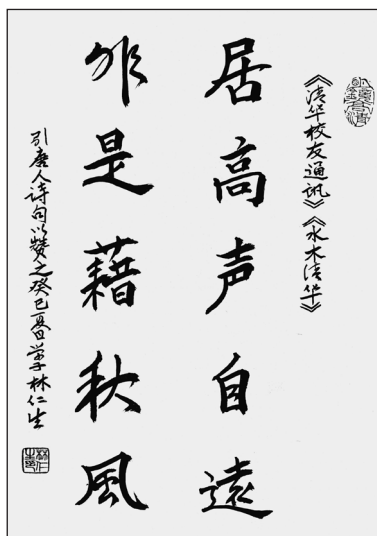 《清华校友通讯》《水木清华》
居高声自遠
非是藉秋風
引唐人诗句以赞之癸巳夏日学子林仁生